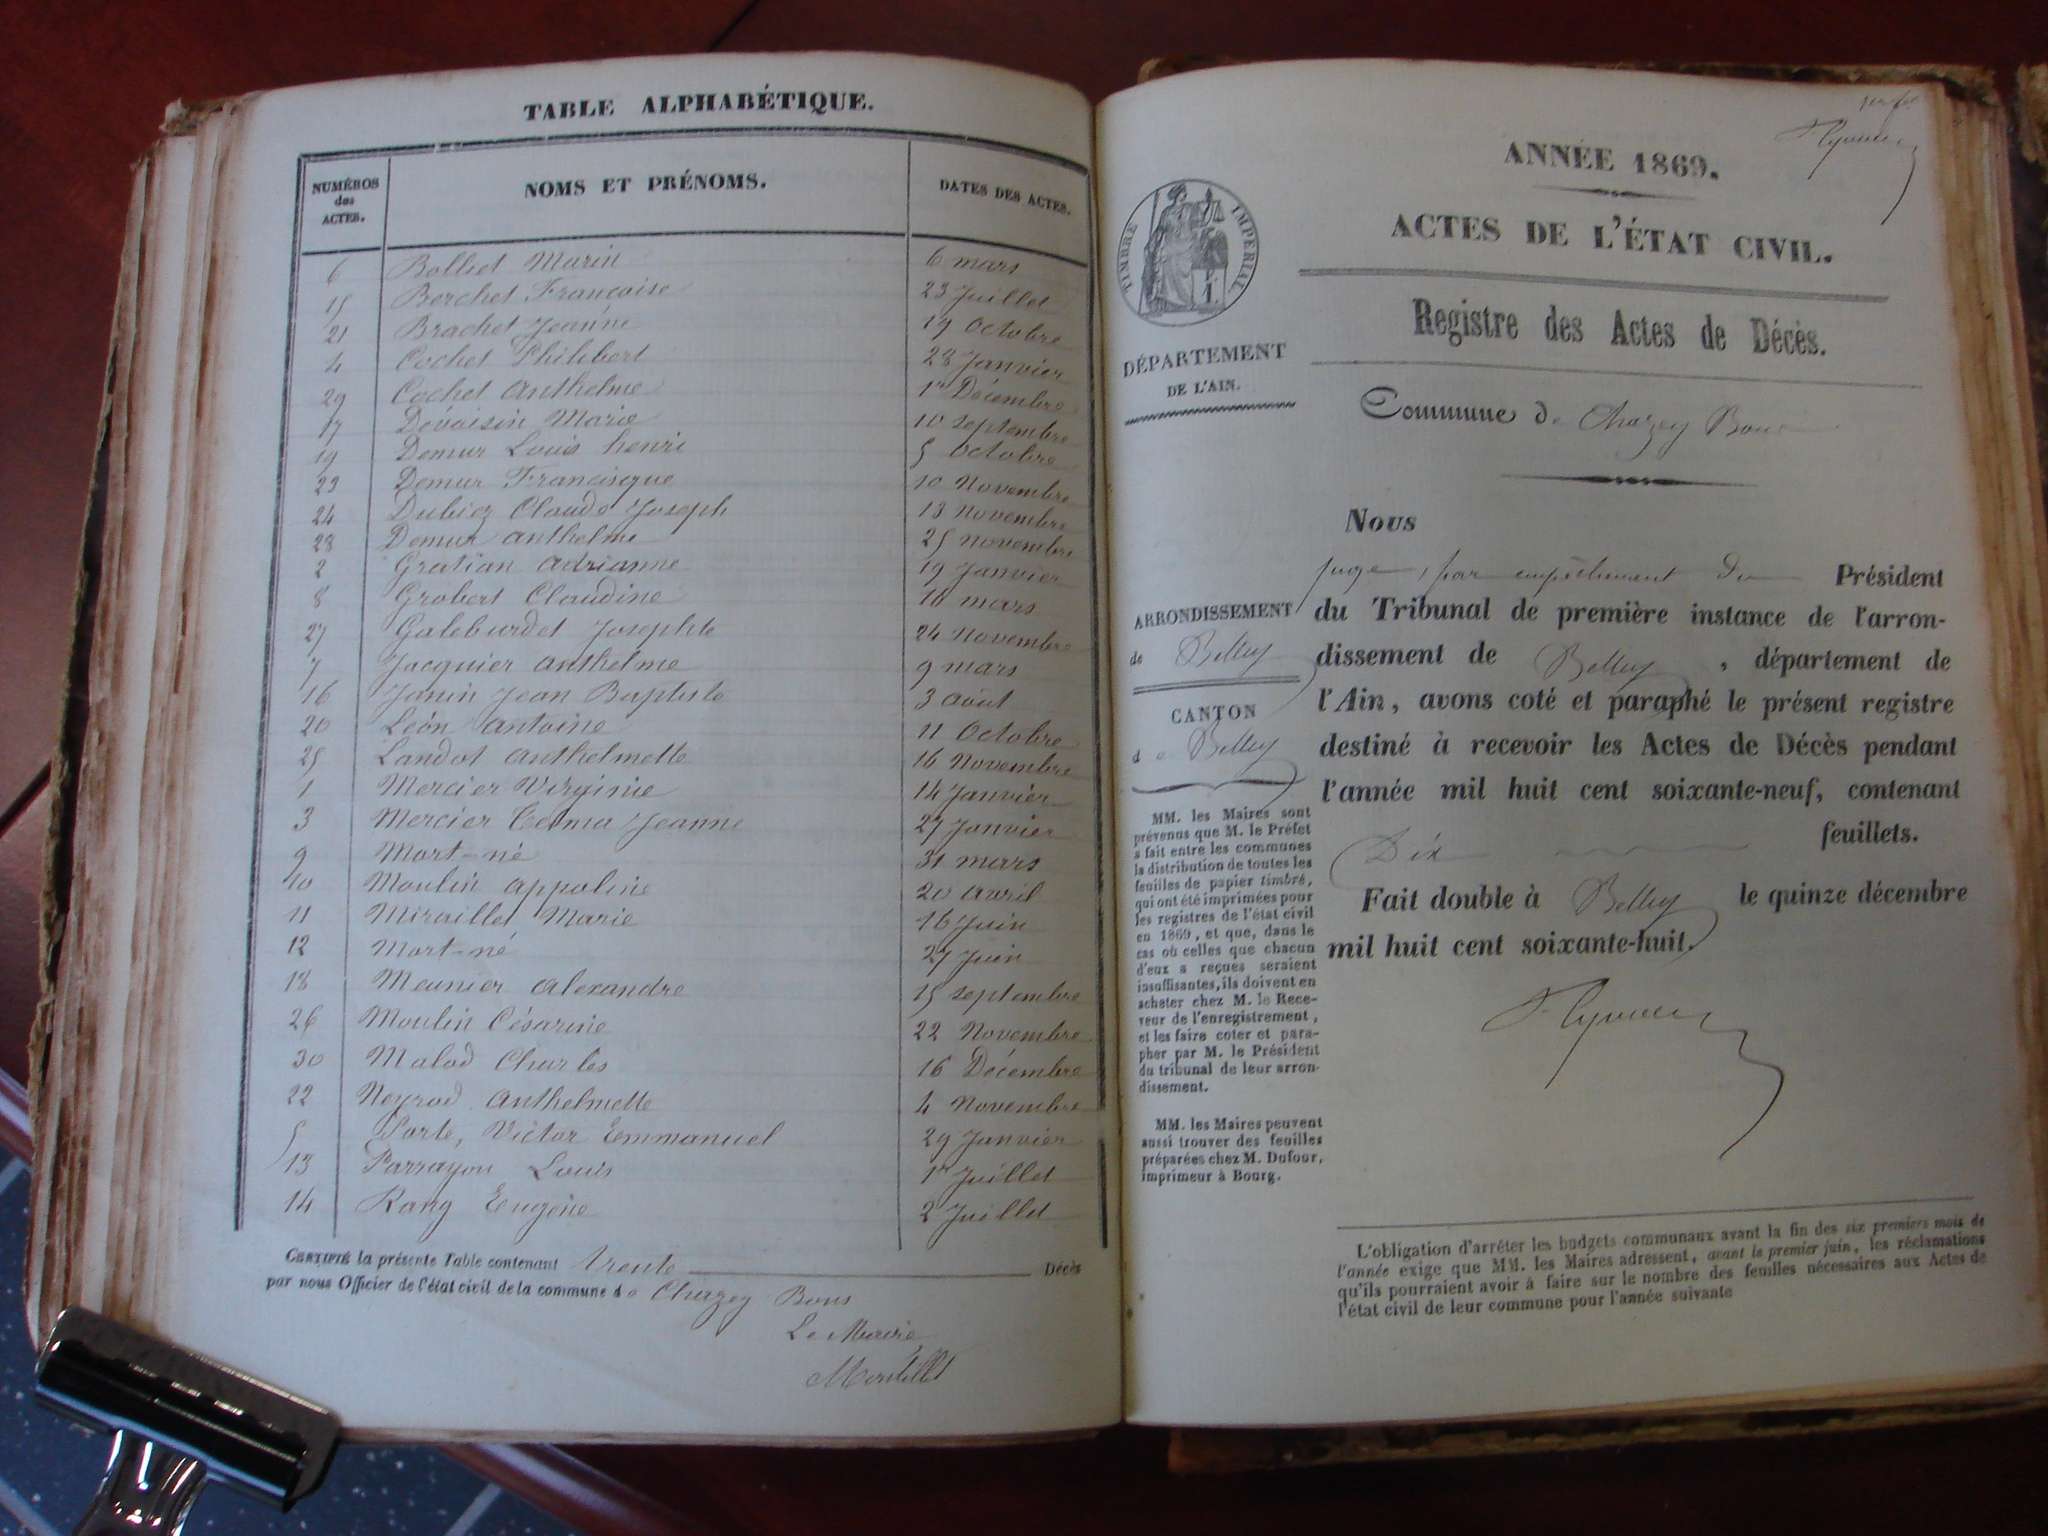 TABLE ALPHABÉTIQUE.
NUMÉROS des ACTES. NOMS ET PRÉNOMS. DATES DES ACTES.
6 Bollet Marin 6 mars
15 Berchet Françoise 23 Juillet
21 Brachet Jeanne 19 Octobre
4 Cochet Philibert 28 Janvier
29 Cochet Anthelme 1er Décembre
17 Dévaisin Marie 10 septembre
19 Demur Louis henri 5 Octobre
23 Demur Francisque 10 Novembre
24 Dubiez Claude Joseph 13 Novembre
28 Demur Anthelme 25 novembre
2 Gratian Adrianne 19 Janvier
8 Grobert Claudine 16 mars
27 Galeburdet Josephte 24 Novembre
7 Jacquier Anthelme 9 mars
16 Janin Jean Baptiste 3 août
20 León Antoine 11 Octobre
25 Landot Anthelmette 16 Novembre
1 Mercier Virginie 14 Janvier
3 Mercier Jeanne 27 Janvier
9 Mort-né 31 mars
10 Moulin Appoline 20 avril
11 Miraillet Marie 16 Juin
12 Mort-né 27 Juin
18 Meunier Alexandre 15 septembre
26 Moulin Césarine 22 Novembre
30 Malod Charles 16 Décembre
22 Neyrod Anthelmette 4 Novembre
5 Porte, Victor Emmanuel 29 Janvier
13 Parrayon Louis 1er Juillet
14 Rang Eugène 2 Juillet
CERTIFIÉ la présente Table contenant trente Décès
par nous Officier de l'état civil de la commune de Chazey Bons
Le Maire
Montillet
ANNÉE 1869.
ACTES DE L'ÉTAT CIVIL.
TIMBRE IMPÉRIAL
Registre des Actes de Décès.
DÉPARTEMENT
DE L'AIN.
Commune de Chazey Bons
Nous
juge, par empêchement du Président
du Tribunal de première instance de l'arron-
dissement de Belley, département de
l'Ain, avons coté et paraphé le présent registre
destiné à recevoir les Actes de Décès pendant
l'année mil huit cent soixante-neuf, contenant
Dix feuillets.
Fait double à Belley le quinze décembre
mil huit cent soixante-huit.
ARRONDISSEMENT
de Belley
CANTON
de Belley
MM. les Maires sont
prévenus que M. le Préfet
a fait entre les communes
la distribution de toutes les
feuilles de papier timbré,
qui ont été imprimées pour
les registres de l'état civil
en 1869, et que, dans le
cas où celles que chacun
d'eux a reçues seraient
insuffisantes, ils doivent en
acheter chez M. le Rece-
veur de l'enregistrement,
et les faire coter et para-
pher par M. le Président
du tribunal de leur arron-
dissement.
MM. les Maires peuvent
aussi trouver des feuilles
préparées chez M. Dufour,
imprimeur à Bourg.
L'obligation d'arrêter les budgets communaux avant la fin des six premiers mois de
l'année exige que MM. les Maires adressent, avant le premier juin, les réclamations
qu'ils pourraient avoir à faire sur le nombre des feuilles nécessaires aux Actes de
l'état civil de leur commune pour l'année suivante